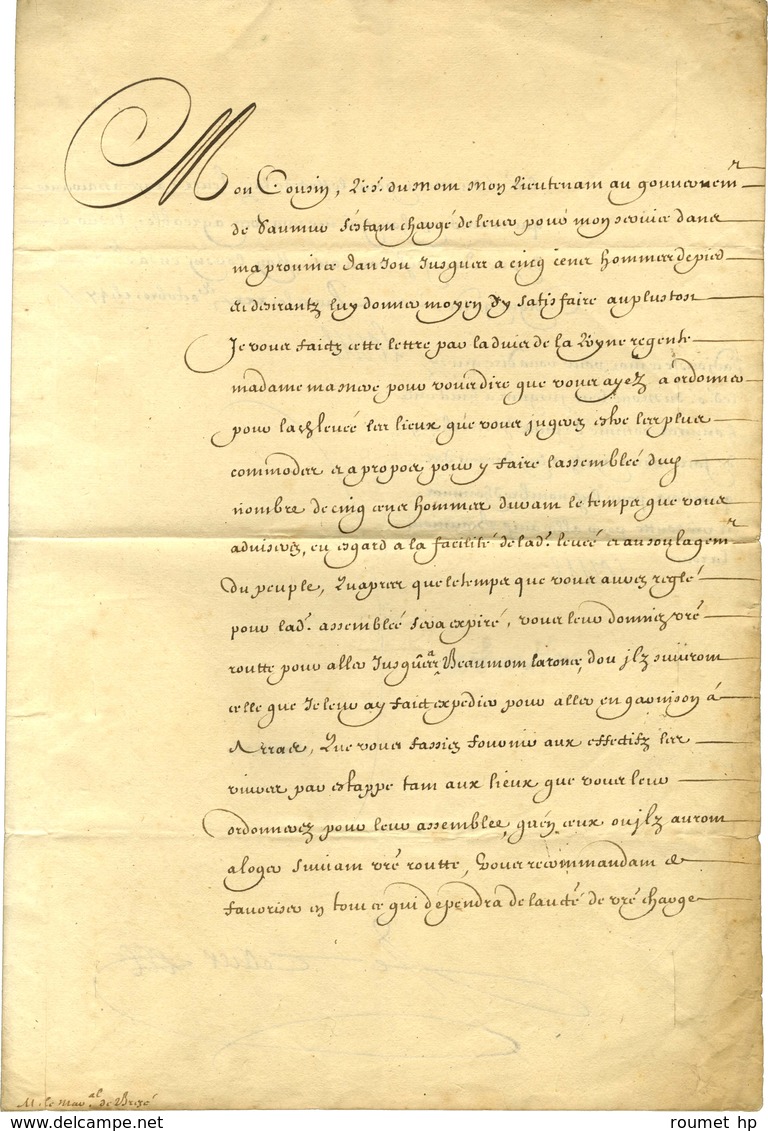 Mon Cousin, Le sr. du Mont mon Lieutenant au gouvernemt
de Saumur s'estant chargé de lever pour mon service dans
ma province danjou Jusques a cinq cens hommes de pied
et desirant luy donner moyen dy satisfaire au plustost
Je vous faictz cette lettre par ladvis de la Royne regente
madame ma mere pour vous dire que vous ayez a ordonner
pour lad. levée les lieux que vous jugerez estre les plus
commodes et a propos pour y faire lassemblée dud.
nombre de cinq cens hommes durant le temps que vous
adviserez, eu esgard a la facilité de lad. levée et au soulagemt
du peuple, Quapres que le temps que vous aurez reglé
pour lad. assemblée sera expiré, vous leur donniez vre
routte pour aller Jusques a Beaumont laronce, dou jlz suivront
celle que Je leur ay faict expedier pour aller en garnison à
Arras, Que vous fassiez fournir aux effectifz les
vivres par estappe tant aux lieux que vous leur
ordonnerez pour leur assemblée, quen ceux ou jlz auront
a loger suivant vre routte, Vous recommandant de
favoriser en tout ce qui dependra de laucté de vre charge
M. le Maral de Brezé
roumet hp